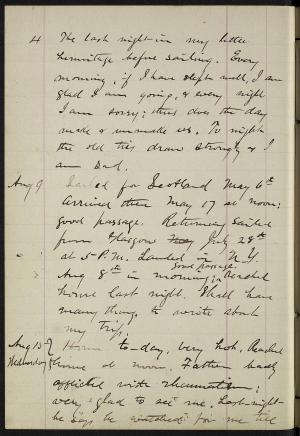 4 The last night in my little
hermitage before sailing. Every
morning, if I have slept well, I am
glad I am going, & every night
I am sorry; thus does the day
make & unmake us. To night
the old ties draw strongly & I
am sad.
Aug 9 Sailed for Scotland May 6th
Arrived there May 17 at noon;
good passage. Returning sailed
from Glasgow July 28th
at 5 P.M. Landed in N.Y.
Aug 8th in morning; good passage. Reached
home last night. Shall have
many things to write about
my trip.
Aug 15 Home to-day, very hot. Reached
Wednesday home at noon. Father badly
afflicted with rheumatism;
very glad to see me. Last night
he says he watched for me till